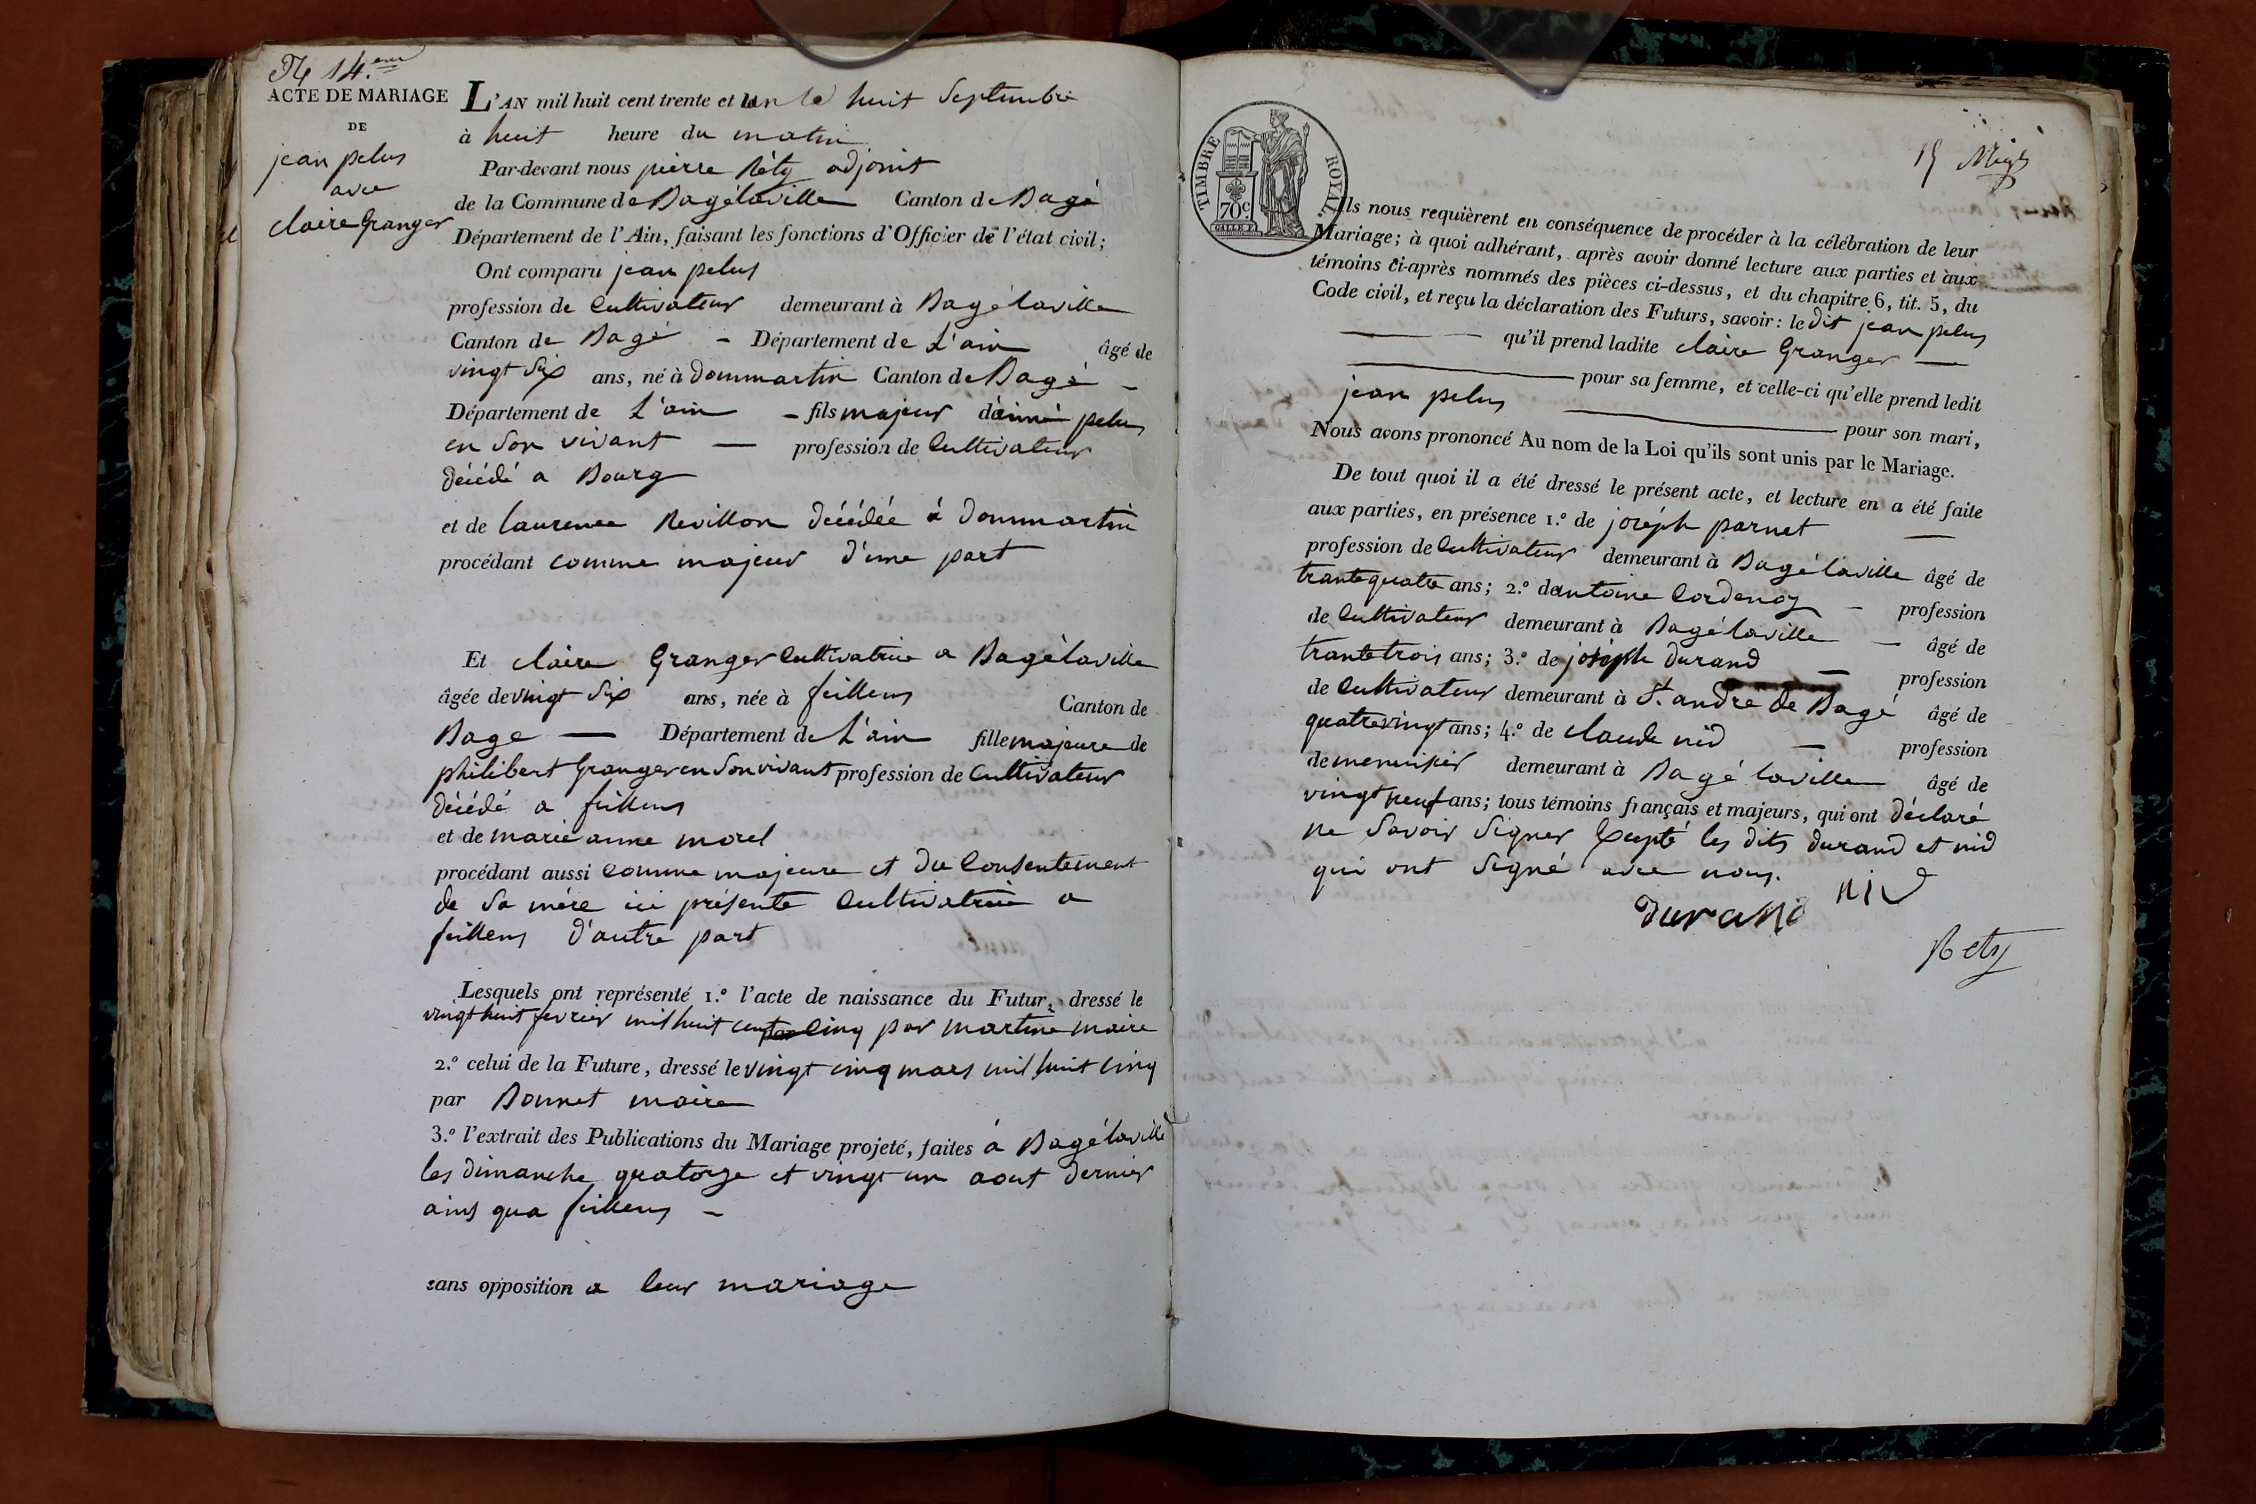 14.eme
ACTE DE MARIAGE
DE
jean pelus
avec
claire Granger
L'AN mil huit cent trente et un le huit Septembre
à huit heure du matin
Par-devant nous pierre Réty adjoint
de la Commune de Bagélaville Canton de Bagé
Département de l'Ain, faisant les fonctions d'Officier de l'état civil;
Ont comparu jean pelus
profession de Cultivateur demeurant à Bagélaville
Canton de Bagé - Département de L'ain âgé de
vingt Six ans, né à dommartin Canton de Bagé -
Département de L'ain - fils majeur d'aimé pelus
en Son vivant — profession de Cultivateur
décédé a Bourg
et de laurence Revillon décédée à dommartin
procédant comme majeur d'une part
Et claire Granger Cultivatrice a Bagélaville
âgée de vingt Six ans, née à feillens Canton de
Bage — Département de L'ain fille majeure de
philibert Granger en Son vivant profession de Cultivateur
décédé a feillens
et de marie anne morel
procédant aussi Comme majeure et du Consentement
de Sa mére ici présente Cultivatrice a
feillens d'autre part
Lesquels ont représenté 1.º l'acte de naissance du Futur, dressé le
vingt huit fevrier mil huit cent Cinq par martine maire
2.º celui de la Future, dressé le vingt cinq mars mil huit Cinq
par Bonnet maire
3.º l'extrait des Publications du Mariage projeté, faites à Bagélaville
les dimanche quatorze et vingt un aout dernier
ains qua feillens -
sans opposition a leur mariage
TIMBRE ROYAL.
70c
15
Ils nous requièrent en conséquence de procéder à la célébration de leur
Mariage; à quoi adhérant, après avoir donné lecture aux parties et aux
témoins ci-après nommés des pièces ci-dessus, et du chapitre 6, tit. 5, du
Code civil, et reçu la déclaration des Futurs, savoir: le dit jean pelus
— qu'il prend ladite claire Granger —
— pour sa femme, et celle-ci qu'elle prend ledit
jean pelus — pour son mari,
Nous avons prononcé Au nom de la Loi qu'ils sont unis par le Mariage.
De tout quoi il a été dressé le présent acte, et lecture en a été faite
aux parties, en présence 1.º de joséph parnet —
profession de Cultivateur demeurant à Bagélaville âgé de
trante quatre ans; 2.º de antoine Cordenoz - profession
de Cultivateur demeurant à Bagélaville — âgé de
trante trois ans; 3.º de joséph durand — profession
de Cultivateur demeurant à St. andré de Bagé âgé de
quatrevingt ans; 4.º de claude nid — profession
de menuisier demeurant à Bagé laville âgé de
vingt neuf ans; tous témoins français et majeurs, qui ont déclaré
ne Savoir Signer Excepté les dits durand et nid
qui ont Signé avec nous.
durand nid
Réty